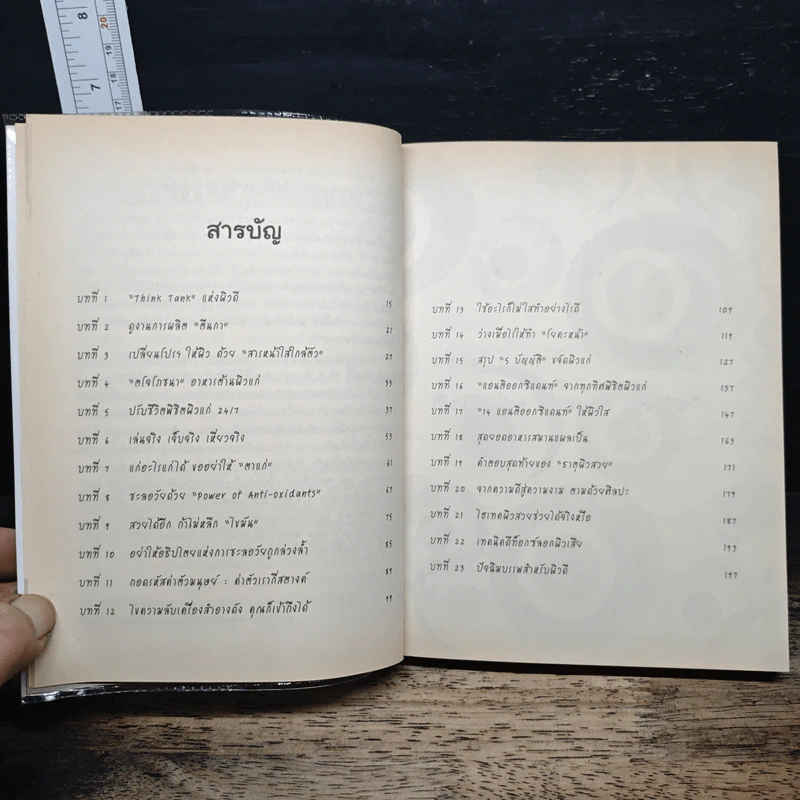 8
20
19
7
18
17
สารบัญ
บทที่ 1 "Think Tank" แห่งผิวดี 15
บทที่ 2 ดูงานการผลิต "ตีนกา" 21
บทที่ 3 เปลี่ยนโปรฯ ให้ผิว ด้วย "สารหน้าใสใกล้ตัว" 27
บทที่ 4 "ตโจโภชนา" อาหารต้านผิวแก่ 33
บทที่ 5 ปรับชีวิตพิชิตผิวแก่ 24/7 37
บทที่ 6 เล่นจริง เจ็บจริง เหี่ยวจริง 53
บทที่ 7 แก่อะไรแก่ได้ ขออย่าให้ "ตาแก่" 61
บทที่ 8 ชะลอวัยด้วย "Power of Anti-oxidants" 67
บทที่ 9 สวยได้อีก ถ้าไม่หลีก "ไขมัน" 75
บทที่ 10 อย่าให้อธิปไตยแห่งการชะลอวัยถูกล่วงล้ำ 85
บทที่ 11 ถอดรหัสค่าตัวมนุษย์ : ค่าตัวเรากี่สตางค์ 89
บทที่ 12 ไขความลับเครื่องสำอางดัง คุณก็เข้าถึงได้ 99
บทที่ 13 ใช้อะไรก็ไม่ใสทำอย่างไรดี 109
บทที่ 14 ว่างเมื่อไรให้ทำ "โยคะหน้า" 119
บทที่ 15 สรุป "5 บัญญัติ" ขจัดผิวแก่ 127
บทที่ 16 "แอนติออกซิแดนท์" จากทุกทิศพิชิตผิวแก่ 137
บทที่ 17 "14 แอนติออกซิแดนท์" ให้ผิวใส 147
บทที่ 18 สุดยอดอาหารสมานแผลเป็น 163
บทที่ 19 คำตอบสุดท้ายของ "ธาตุผิวสวย" 171
บทที่ 20 จากความดีสู่ความงาม ตามด้วยศิลปะ 179
บทที่ 21 ไฮเทคผิวสวยช่วยได้จริงหรือ 187
บทที่ 22 เทคนิคดีท็อกซ์ลอกผิวเสีย 193
บทที่ 23 ปัจฉิมบรรพสำหรับผิวดี 197